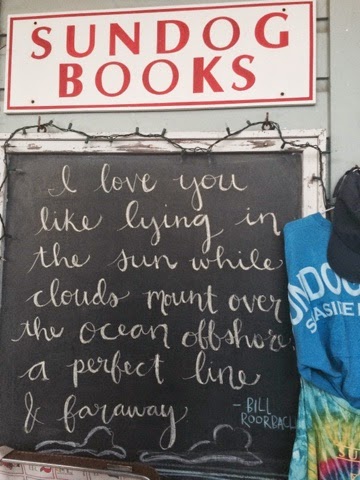 SUNDOG
BOOKS
I love you
like lying in
the sun while
clouds mount over
the ocean offshore
a perfect line
& faraway
- BILL
ROORBACH